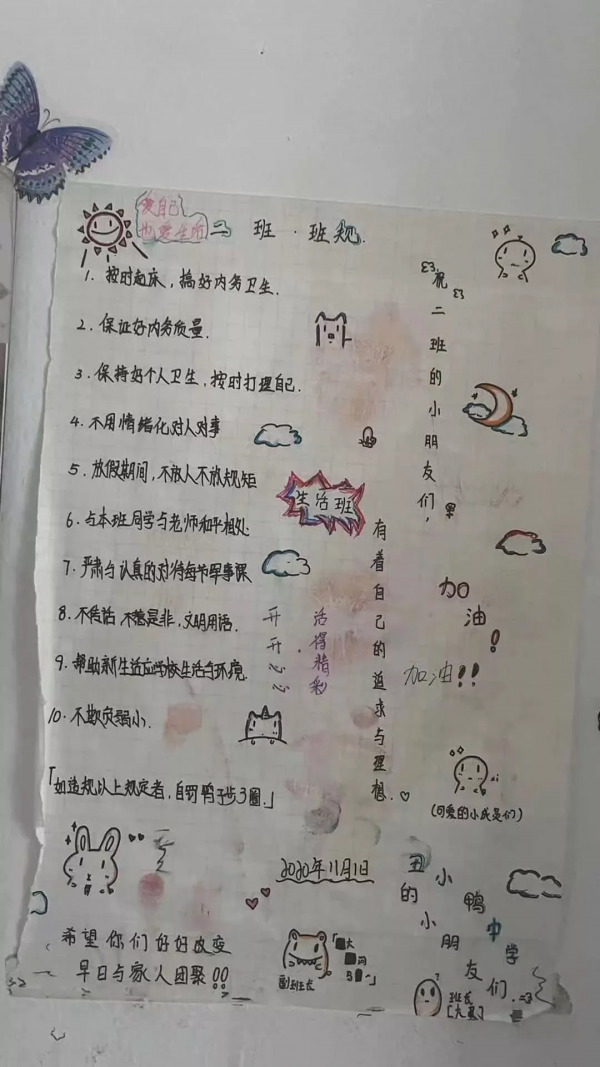 爱自己
也爱生活
二班·班规.
1. 按时起床，搞好内务卫生.
2. 保证好内务质量.
3. 保持好个人卫生，按时打理自己.
4. 不用情绪化对人对事
5. 放假期间，不放人不放规矩
6. 与本班同学与老师和平相处
7. 严肃与认真的对待每节军事课
8. 不传话 不惹是非，文明用语.
9. 帮助新生适应学校生活与环境.
10. 不欺负弱小.
「如违规以上规定者，自罚鸭子步3圈.」
生活班
开开
活得精彩
祝二班的小朋友们，
有着自己的追求与理想.
加油!
加油!!
(可爱的小成是们)
2020年11月1日
希望你们好好改变
早日与家人团聚!!
副班长
丑小鸭中学
的小朋友们.
班长